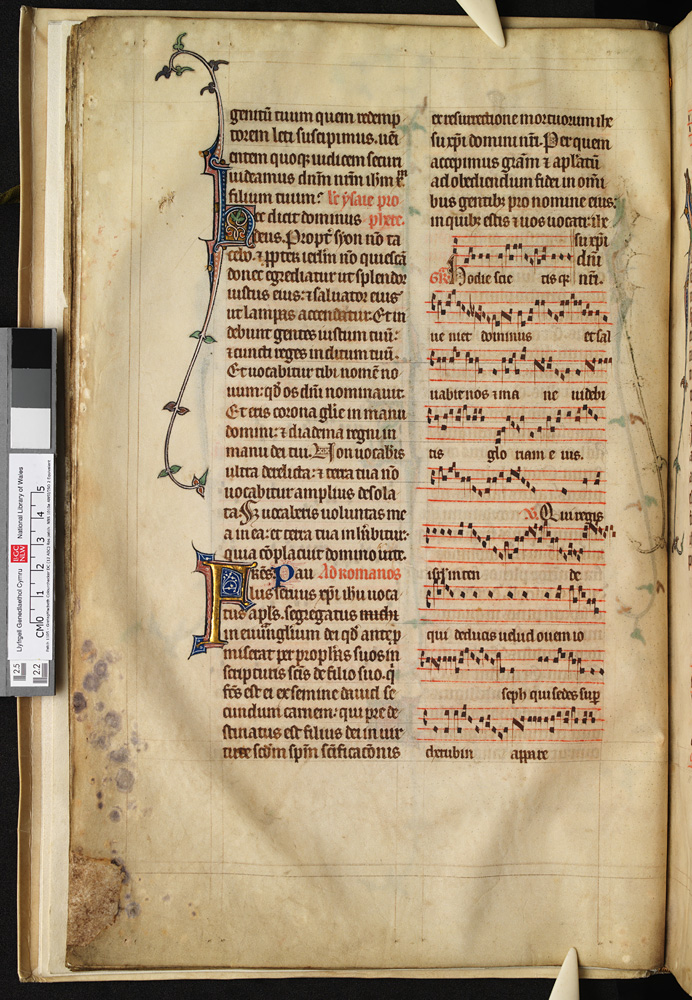 genitū tuum quem redemp
torem leti suscipimus. ueī
entem quoq; iudicem securi
uideamus dnm̄ nrm̄ ihm̄ xm̄
filium tuum. lc̄ ysaie pro
ec dicit dominus phete.
deus. Propt̄ syon nō ta
cebo. ⁊ ꝓpter ierlm̄ nō quiescā
donec egrediatur ut splendor
iustus eius. ⁊ saluator eius
ut lampas accendatur. Et ui
debunt gentes iustum tuū:
⁊ cuncti reges inclitum tuū.
Et uocabitur tibi nomē no
uum: qd̄ os dn̄i nominauit.
Et eris corona glīe in manu
domini: ⁊ diadema regni in
manu dei tui. Non uocab̄is
ultra derelicta: ⁊ terra tua nō
uocabitur amplius desola
ta. Sꝫ uocaberis uoluntas me
a in ea: et terra tua inhītabitur.
quia cōplacuit domino in te.
Frēs Pau Ad romanos
lus seruus xp̄i ihū uoca
tus apl̄s. segregatus
in euāgl̄ium dei qd̄ antep̄
miserat per prophās suos in
scripturis scīs de filio suo. q̄
fc̄s est ei ex semine dauid se
cundum carnem. qui prede
stinatus est filius dei in uir
tute scdm̄ spm̄ scīficacōnis
ex resurrectione mortuorum ihe
su xp̄i domini nr̄i. Per quem
accepimus grām ⁊ apl̄atū
ad obediendum fidei in om̄i
bus gentib; pro nomine eius:
in quib; estis ⁊ uos uocati: ihe
su xp̄i
dn̄i
GR̄ Hodie scie tis q; nr̄i.
ue niet dominus et sal
uabit nos ⁊ ma ne uidebi
tis glo riam e ius.
V̄. Qui regis
isrl̄ inten de
qui deducis uelud ouem io
seph qui sedes sup̄
cherubin appare
Llyfrgell Genedlaethol Cymru
National Library of Wales
LLGC
NLW
CM 0 1 2 3 4 5
2.5
2.2